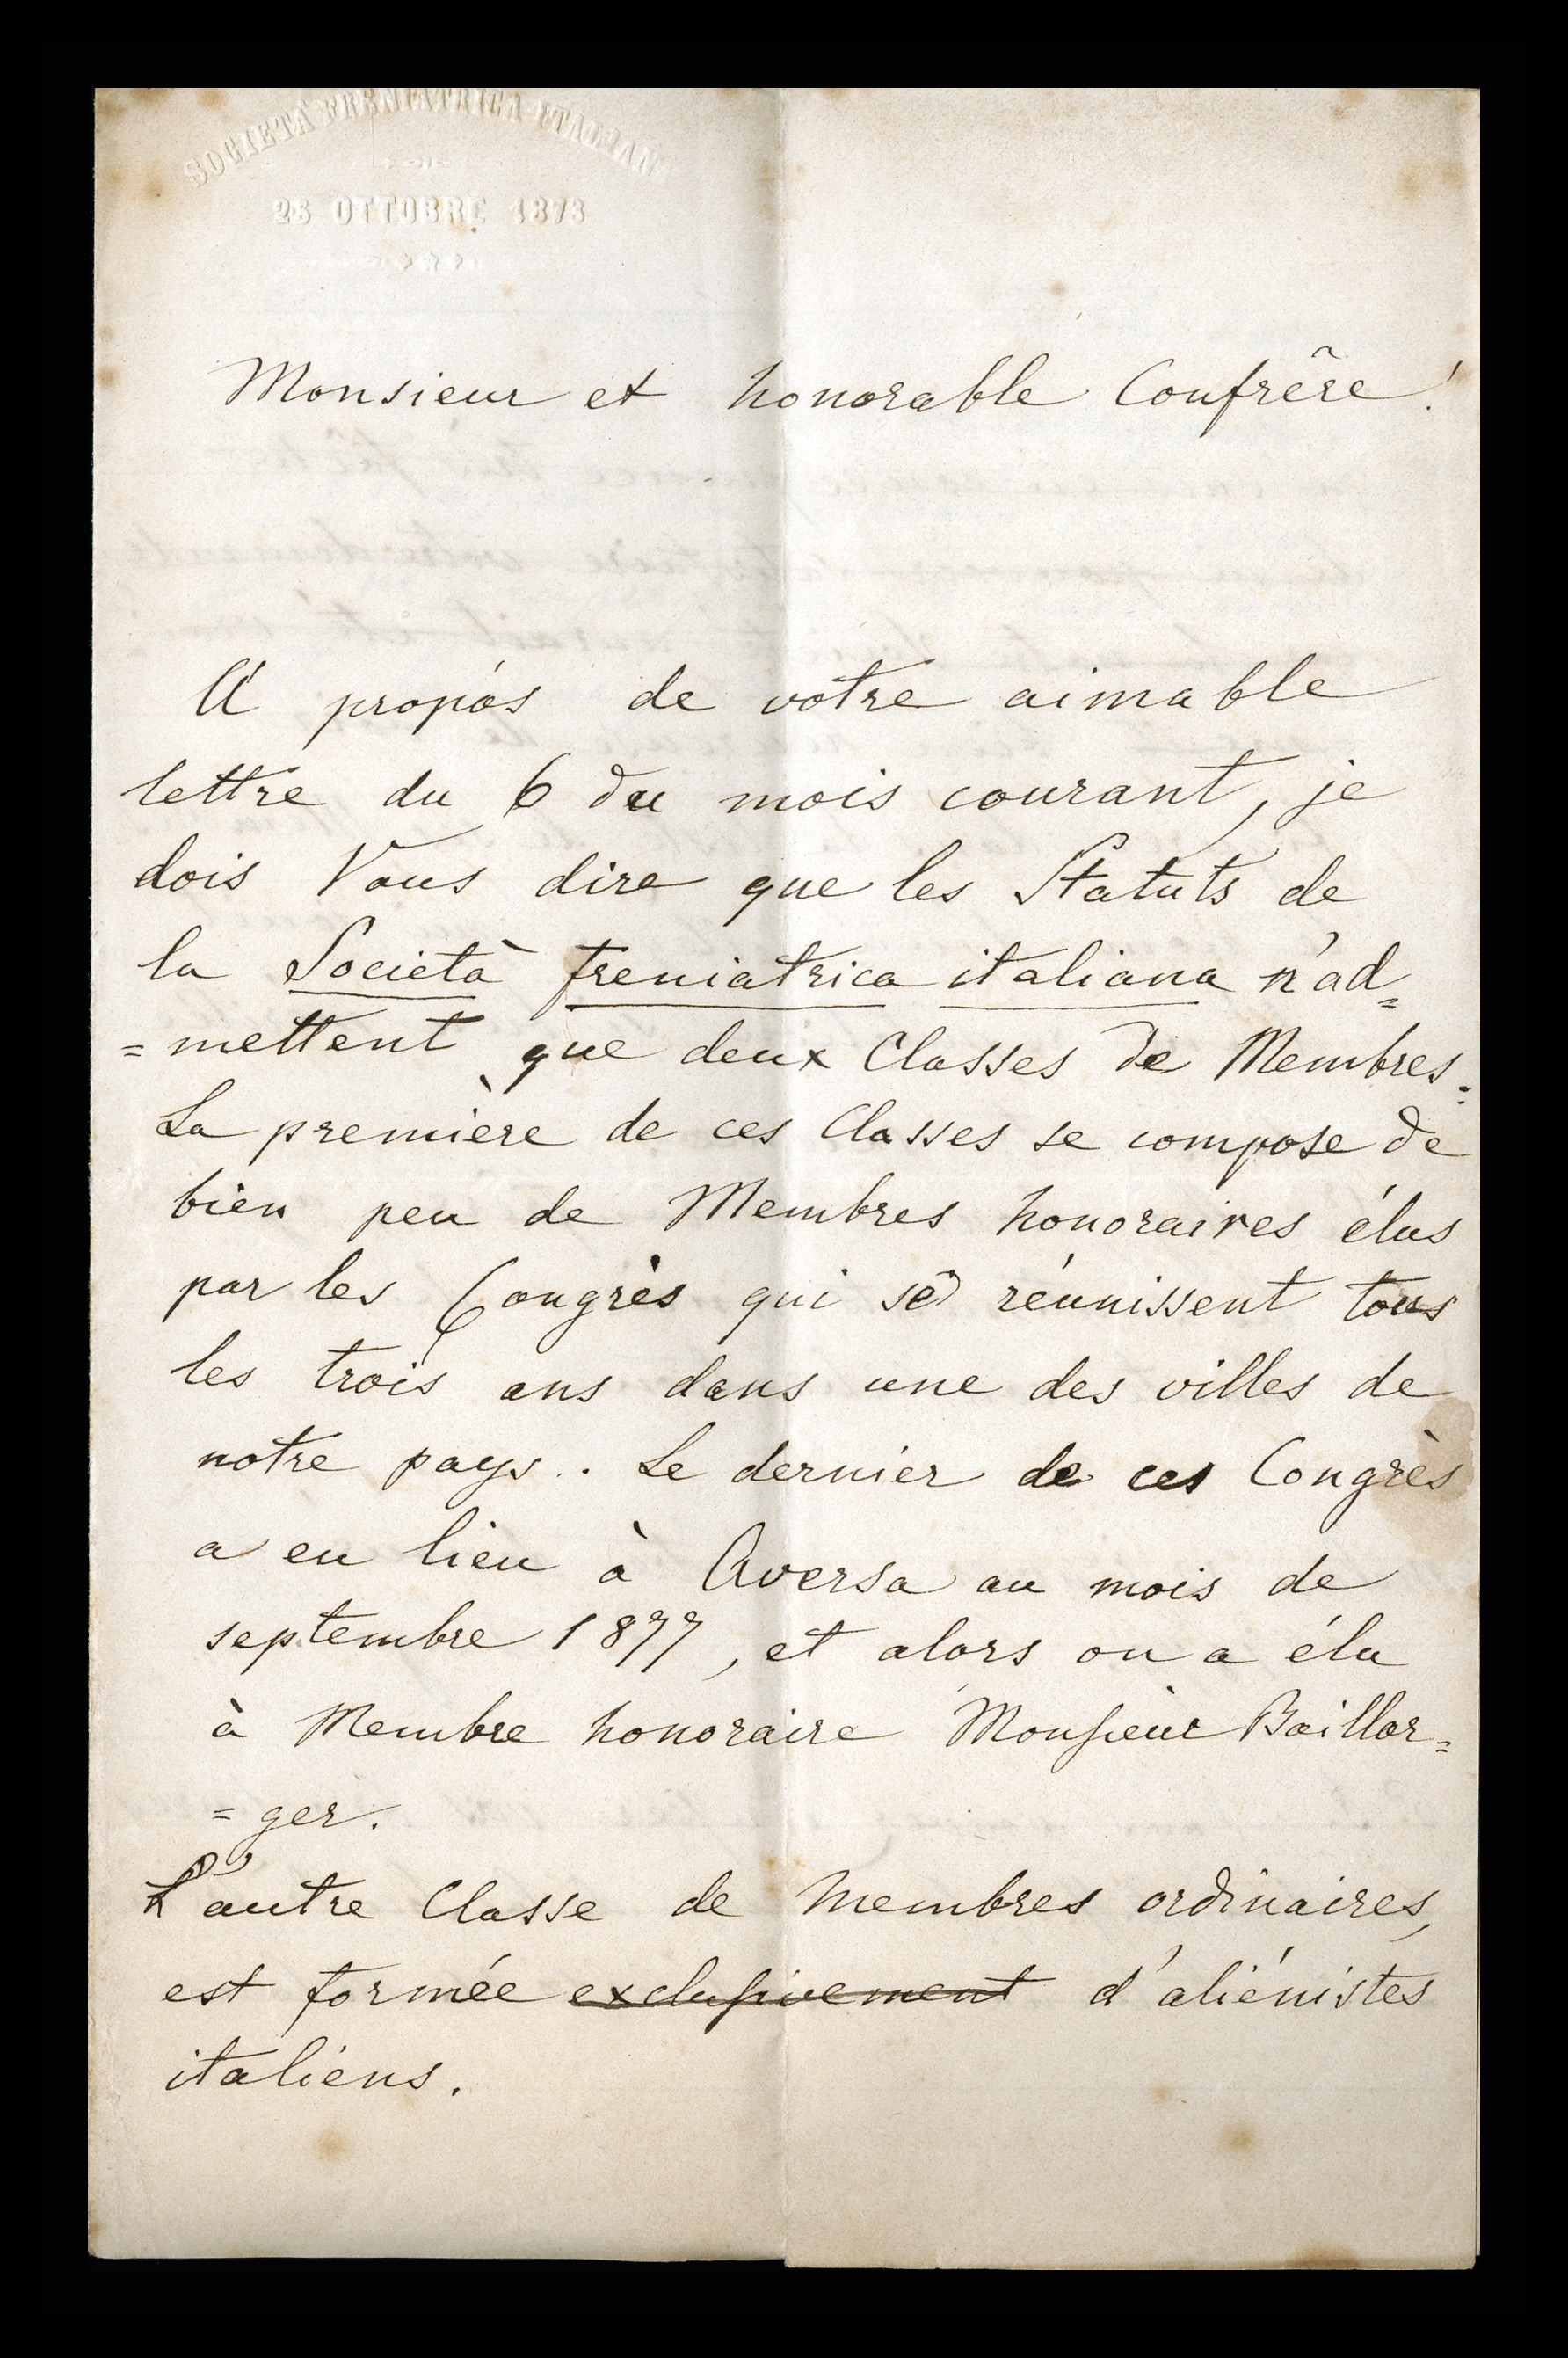 SOCIETÀ FRENIATRICA ITALIAN
26 OTTOBRE 1873
Monsieur et honorable Confrêre!
A' propós de votre aimable
lettre du 6 du mois courant, je
dois Vous dire que les Statuts de
la Società freniatrica italiana n'ad=
=mettent que deux Classes de Membres.
La première de ces Classes se compose de
bien peu de Membres honoraires élus
par les Congrès qui se réunissent tous
les trois ans dans une des villes de
notre pays.. Le dernier de ces Congrès
a eu lieu à Aversa au mois de
septembre 1877, et alors on a élu
à Membre honoraire Monsieur Baillar=
=ger.
L'autre Classe de Membres ordinaires,
est formée exclusivement d'aliénistes
italiens.